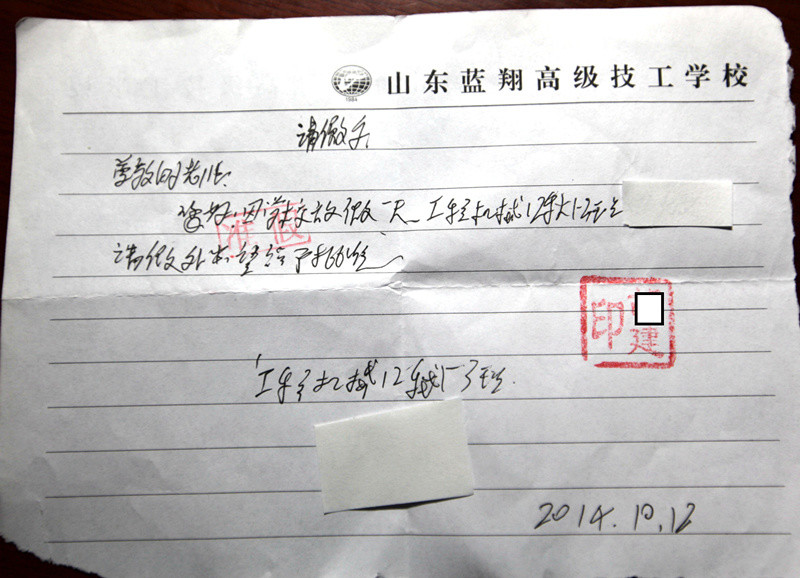 1984
山东蓝翔高级技工学校
请假条
尊敬的老师:
您好,因学校放假一天,工程机械12秋13班
请假外出望给予批准
准假
印 建
工程机械12秋13班
2014.10.12